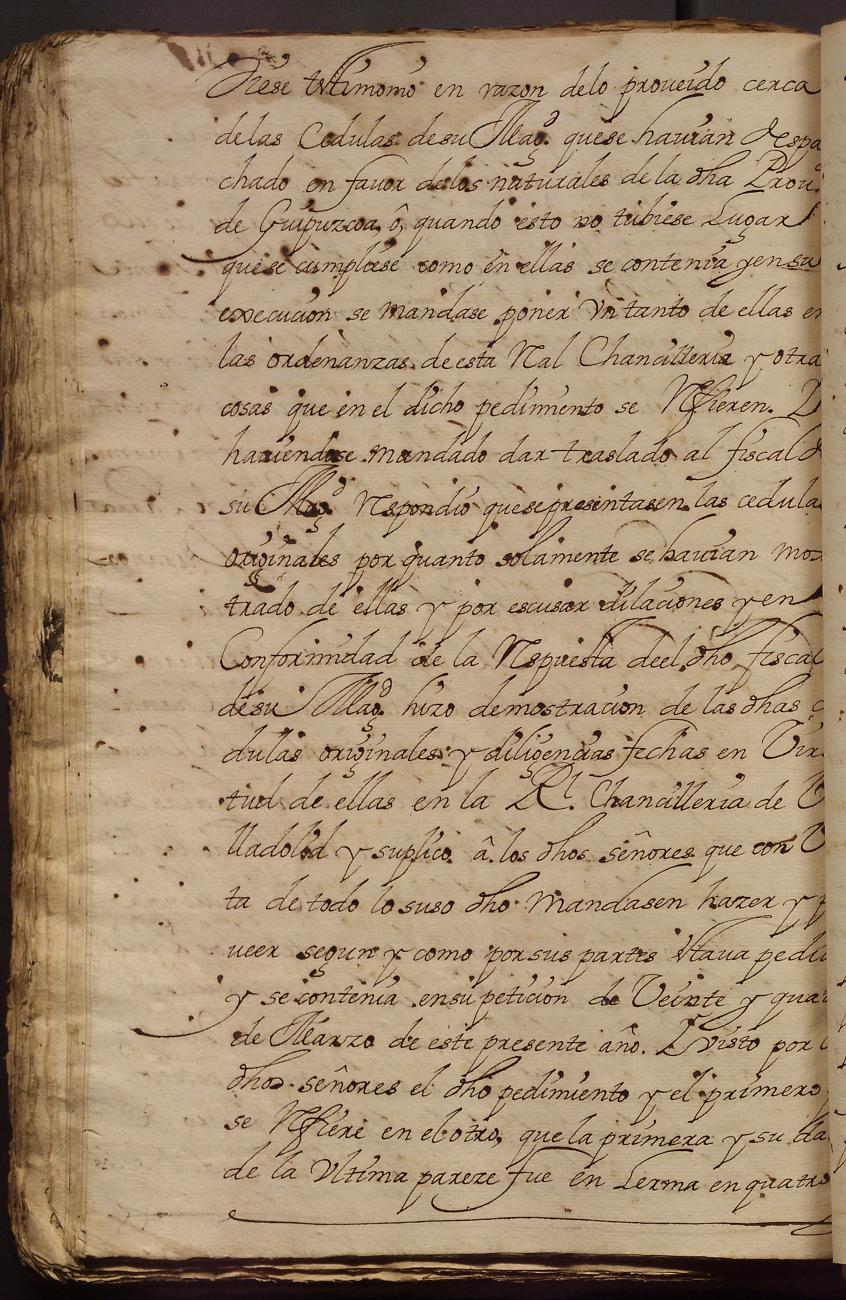 diese testimonio en razon delo proueido cerca
delas Cedulas de su Magd. quese hauian despa
chado en fauor de los naturales de la dha Prou.a
de Guipuzcoa, ô, quando esto no tubiese Lugar
que se cumpliese como en ellas se contenia y en su
execucion se mandase poner Vn tanto de ellas en
las ordenanzas de esta Real Chancilleria y otra
cosas que en el dicho pedimiento se Refieren. Y
hauiendose mandado dar traslado al fiscal d
su Magd. Respondio que se presentasen las cedula
originales por quanto solamente se hauian mos
trado de ellas y por escusar dilaciones y en
Conformidad de la Respuesta de el dho fiscal
de su Magd. hizo demostracion de las dhas c
dulas originales y diligencias fechas en Vir
tud de ellas en la Rl. Chancilleria de V
lladolid y suplico â los dhos señores que con V
ta de todo lo suso dho Mandasen hazer y p
ueer segun y como por sus partes Estaua pedi
y se contenia en su peticion de Veinte y quat
de Marzo de este presente año. Y visto por
dhos señores el dho pedimiento y el primero
se Refiere en el otro, que la primera y su da
de la Vltima pareze fue en Lerma en quatro